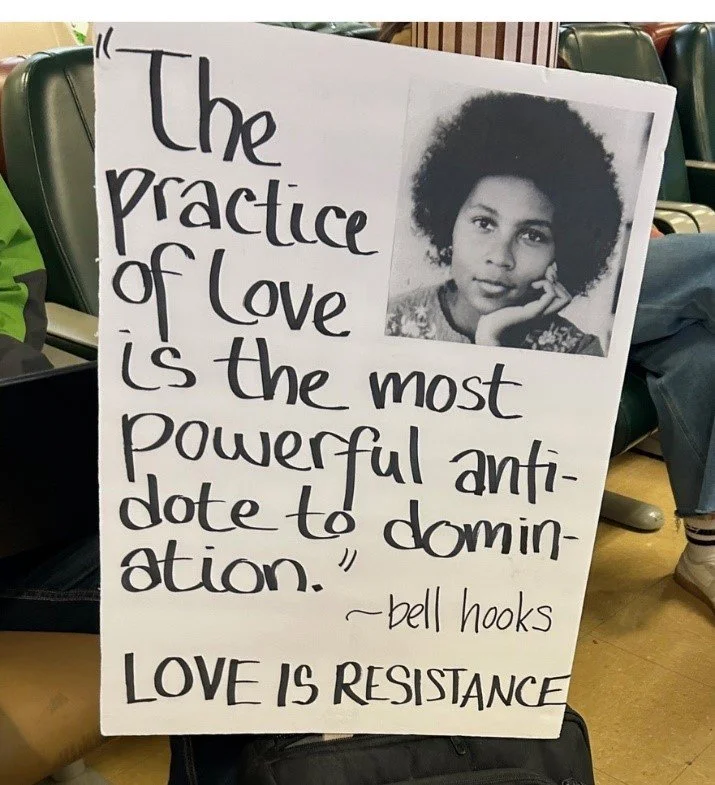 "The
practice
of love
is the most
powerful anti-
dote to domin-
ation."
~bell hooks
LOVE IS RESISTANCE